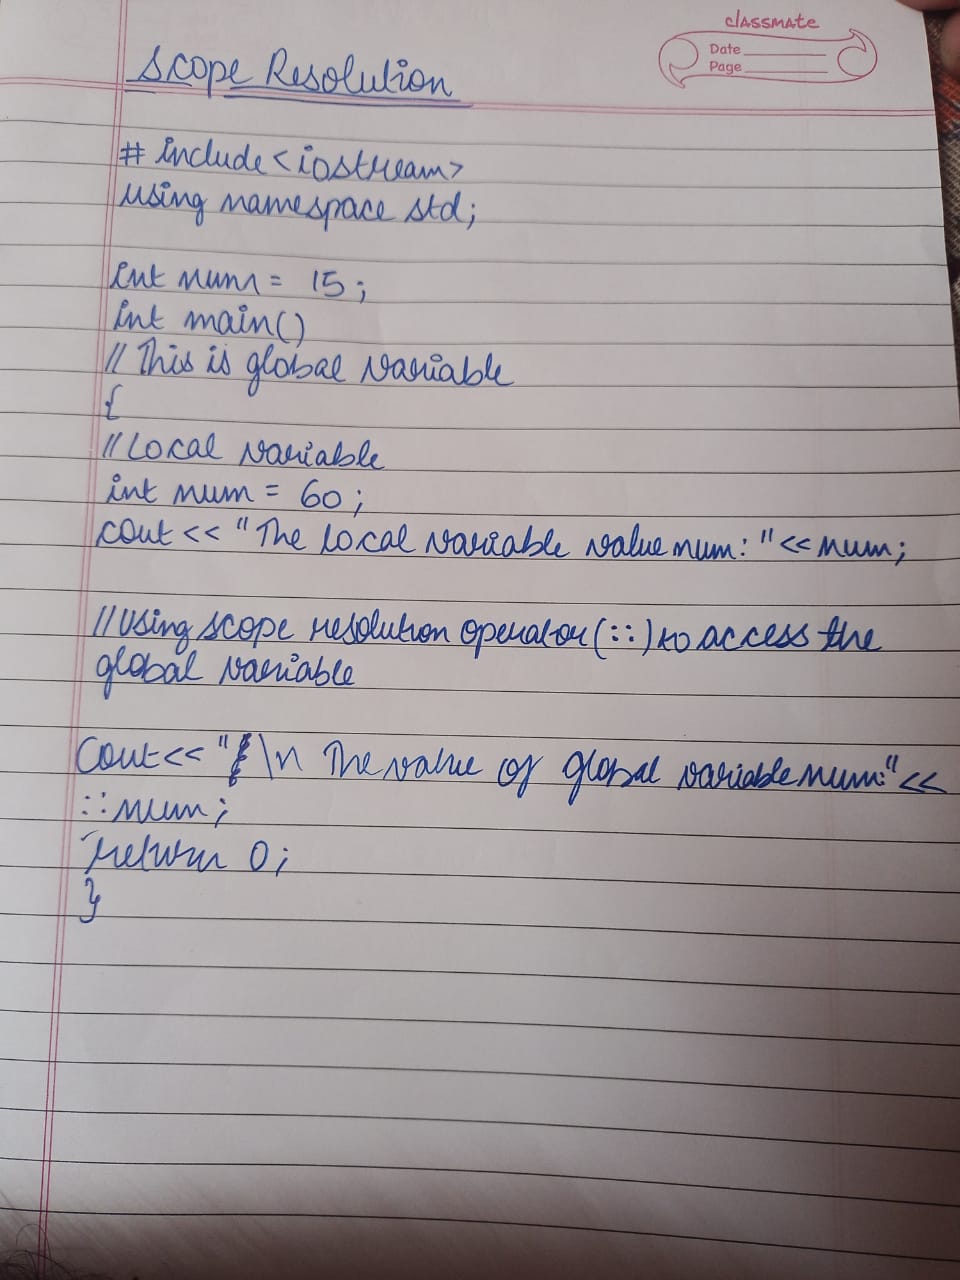 classmate
Date
Page
Scope Resolution
# include <iostream>
using namespace std;
int num = 15;
int main()
// This is global variable
{
// Local variable
int num = 60;
cout << "The local variable value num: "<< num;
// Using scope resolution operator (::) to access the
global variable
Cout << " \n The value of global variable num:" <<
::num;
return 0;
}